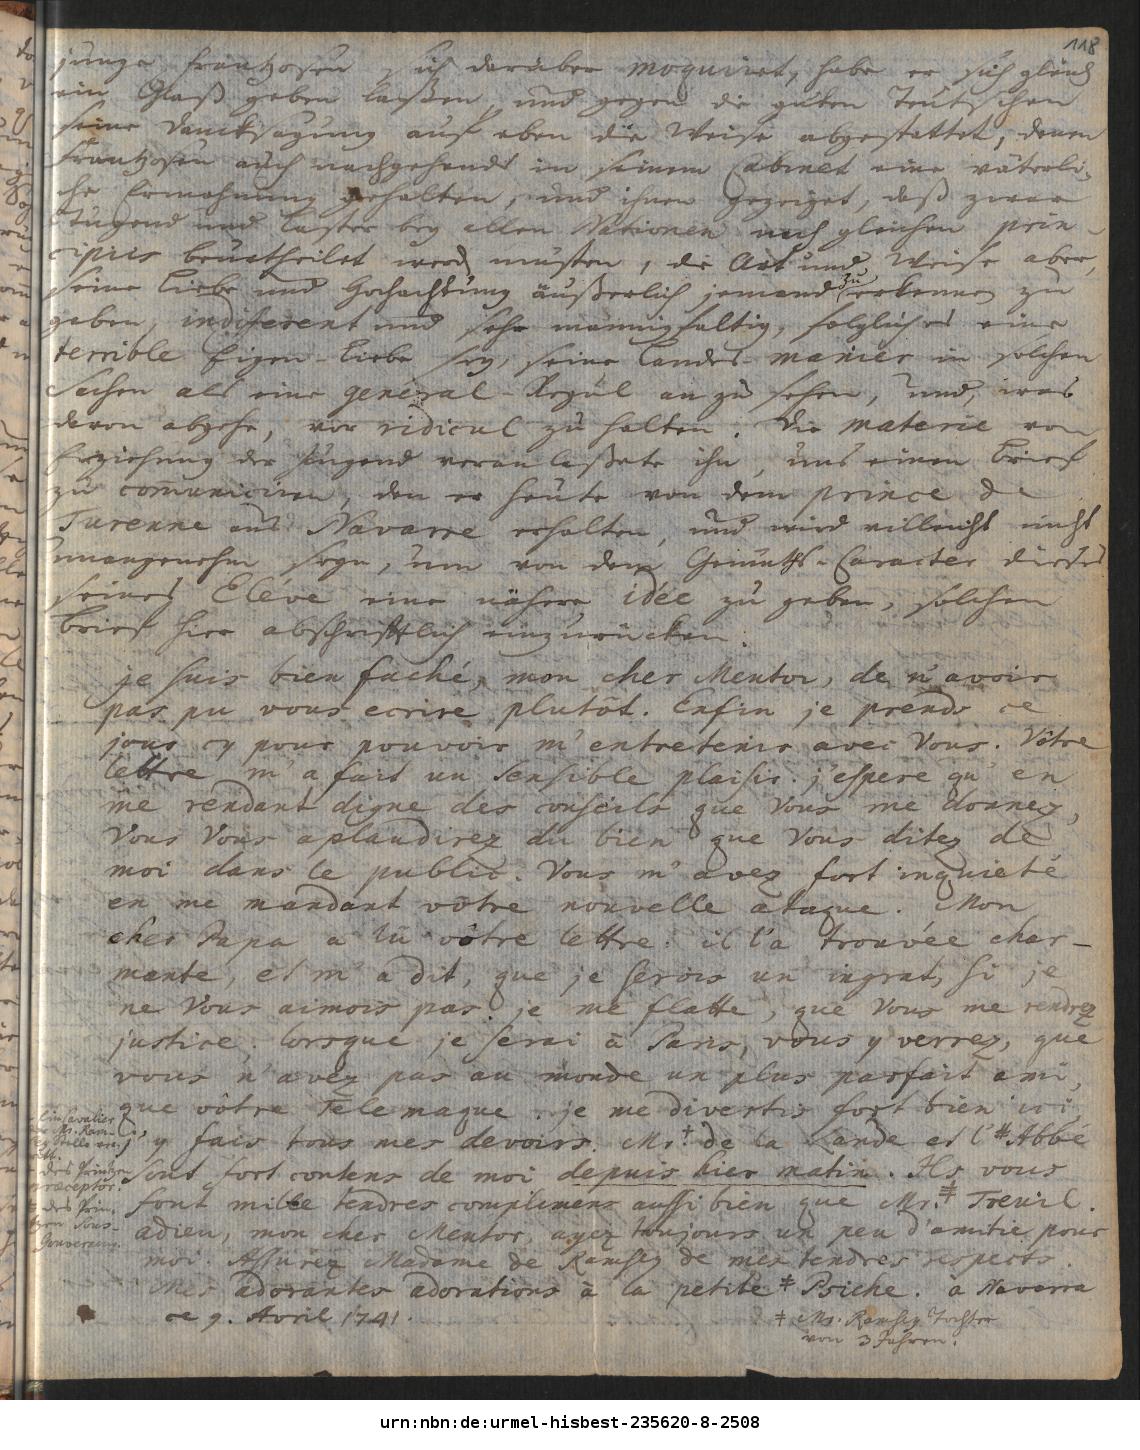 118
junge Frantzosen sich darüber moquiret, habe er sich gleich
ein Glaß geben laßen, und gegen die guten Teutschen
seine Dancksagung auf eben die Weise abgestattet, denen
Frantzosen auch nachgehends in seinem Cabinet eine väterli-
che Ermahnung gehalten, und ihnen gezeiget, daß zwar
Tugend und Laster bey allen Nationen nach gleichen prin-
cipiis beurtheilet werden müsten, die Art und Weise aber,
seine Liebe und Hochachtung äußerlich jemand zu erkennen zu
geben, indiferent und sehr mannigfaltig, folglich es eine
terrible Eigen-Liebe sey, seine Landes-manier in solchen
Sachen als eine general-Regul anzusehen, und, was
davon abgehe, vor ridicul zu halten. Die materie von
Erziehung der Jugend veranlaßete ihn, uns einen Brief
zu communiciren, den er heute von dem prince de
Turenne aus Navarre erhalten, und wird villeicht nicht
unangenehm seyn, um von dem Gemüths-Caracter dieses
seines Eléve eine nähere idée zu geben, solchen
Brief hier abschrifftlich einzurücken.
je suis bien faché, mon cher Mentor, de n'avoir
pas pu vous ecrire plutôt. Enfin je prends ce
jour cy pour pouvoir m'entretenir avec Vous. Vôtre
lettre m'a fait un sensible plaisir. j'espere qu'en
me rendant digne des conseils que Vous me donnez,
Vous Vous aplaudirez du bien que Vous ditez de
moi dans le public. Vous m'avez fort inquieté
en me mandant vôtre nouvelle ataque. Mon
cher Papa a lû vôtre lettre. il l'a trouvée char-
mante, et m'a dit, que je serois un ingrat, si je
ne Vous aimois pas. je me flatte, que Vous me rendrez
justice. lorsque je serai à Paris, vous y verrez, que
vous n'avez pas au monde un plus parfait ami,
que vôtre Telemaque. je me divertis fort bien ici,
j'y fais tous mes devoirs. Mr.† de la Lande et l'‡Abbé
sont fort contens de moi depuis hier matin. Ils vous
font mille tendres complimens aussi bien que Mr.‡ Treuil.
adieu, mon cher Mentor, ayez toujours un peu d'amitie pour
moi. Assurez Madame de Ramsey de mes tendres respects.
Mes adorantes adorations à la petite ‡ Psiche. à Navarre
ce 9. Avril 1741.
‡ Mr. Ramsey Tochter
von 3 Jahren.
Ein Cavalier
Mr. Ram-
Stelle
des Printzen
præceptor.
‡ des Prin-
tzen Sous-
Gouverneur.
urn:nbn:de:urmel-hisbest-235620-8-2508